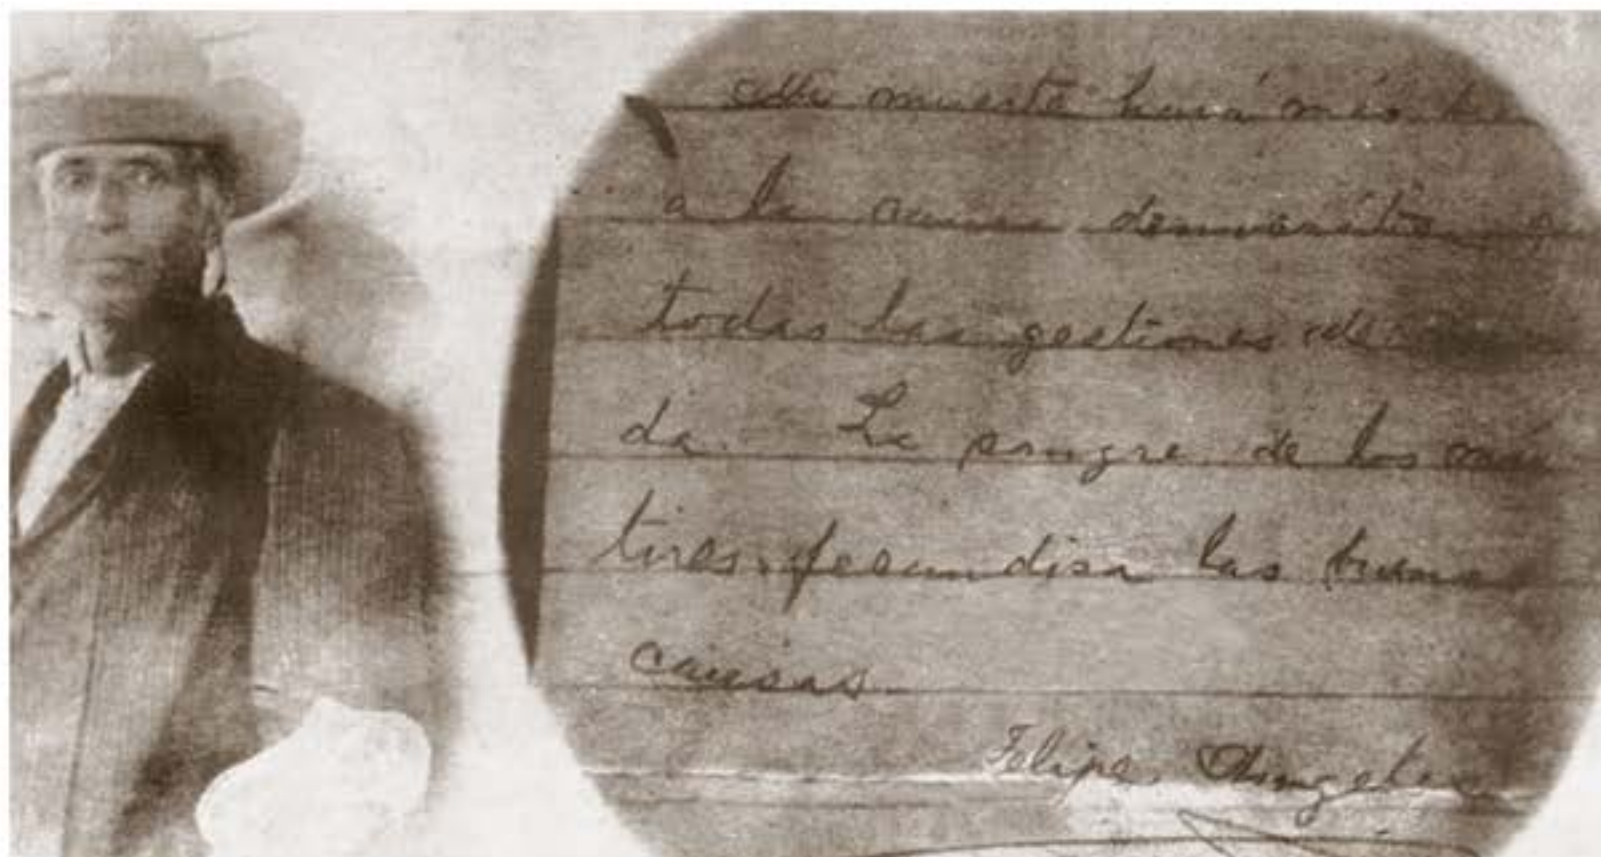 Mi muerte hará más
a la causa democrática
todas las gestiones de
da. La sangre de los már
tires, fecundisa las buenas
causas.
Felipe Angeles